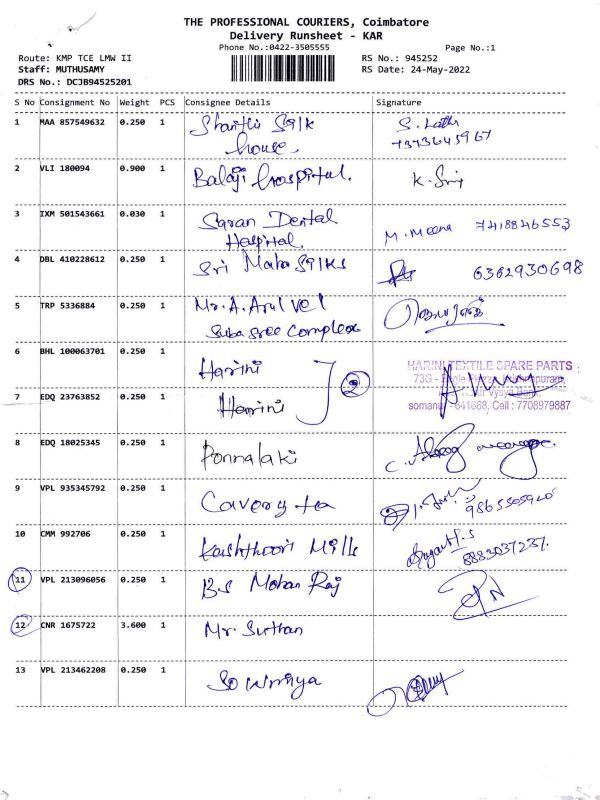 THE PROFESSIONAL COURIERS, Coimbatore
Delivery Runsheet - KAR
Phone No.:0422-3505555
Page No.:1
Route: KMP TCE LMW II
RS No.: 945252
Staff: MUTHUSAMY
RS Date: 24-May-2022
DRS No.: DCJB94525201
S No Consignment No Weight PCS Consignee Details Signature
1 MAA 857549632 0.250 1 Shanthi Silk S. Latha
house. 7373645967
2 VLI 180094 0.900 1 Balaji hospital. K. Sinj
3 IXM 501543661 0.030 1 Saran Dental M. Meena 7418846553
Hospital.
4 DBL 410228612 0.250 1 Sri Maha Silks 6362930698
5 TRP 5336884 0.250 1 Mr. A. Arul vel
Suba Sree Complex
6 BHL 100063701 0.250 1 Harini 2
HARINI TEXTILE SPARE PARTS
73G -
7 EDQ 23763852 0.250 1 Harini
somanur - 641668, Cell : 7708979887
8 EDQ 18025345 0.250 1 Ponnalaki C.
9 VPL 935345792 0.250 1 Cavery tea
10 CMM 992706 0.250 1 Kashthoori Mills 8883037237.
11 VPL 213096056 0.250 1 B.S Mohan Raj
12 CNR 1675722 3.600 1 Mr. Suthan
13 VPL 213462208 0.250 1 Sowmiya